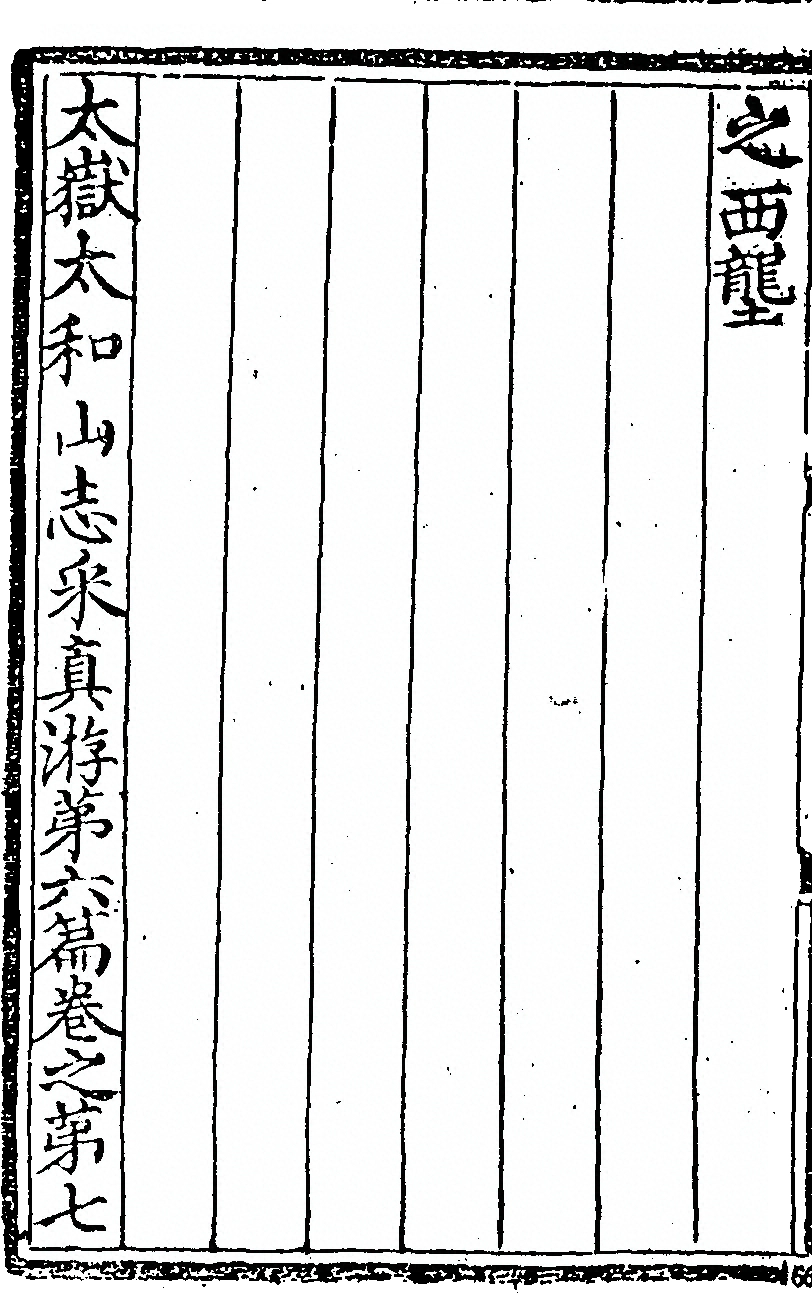 之西壟
太嶽太和山志采真游第六篇卷之第七